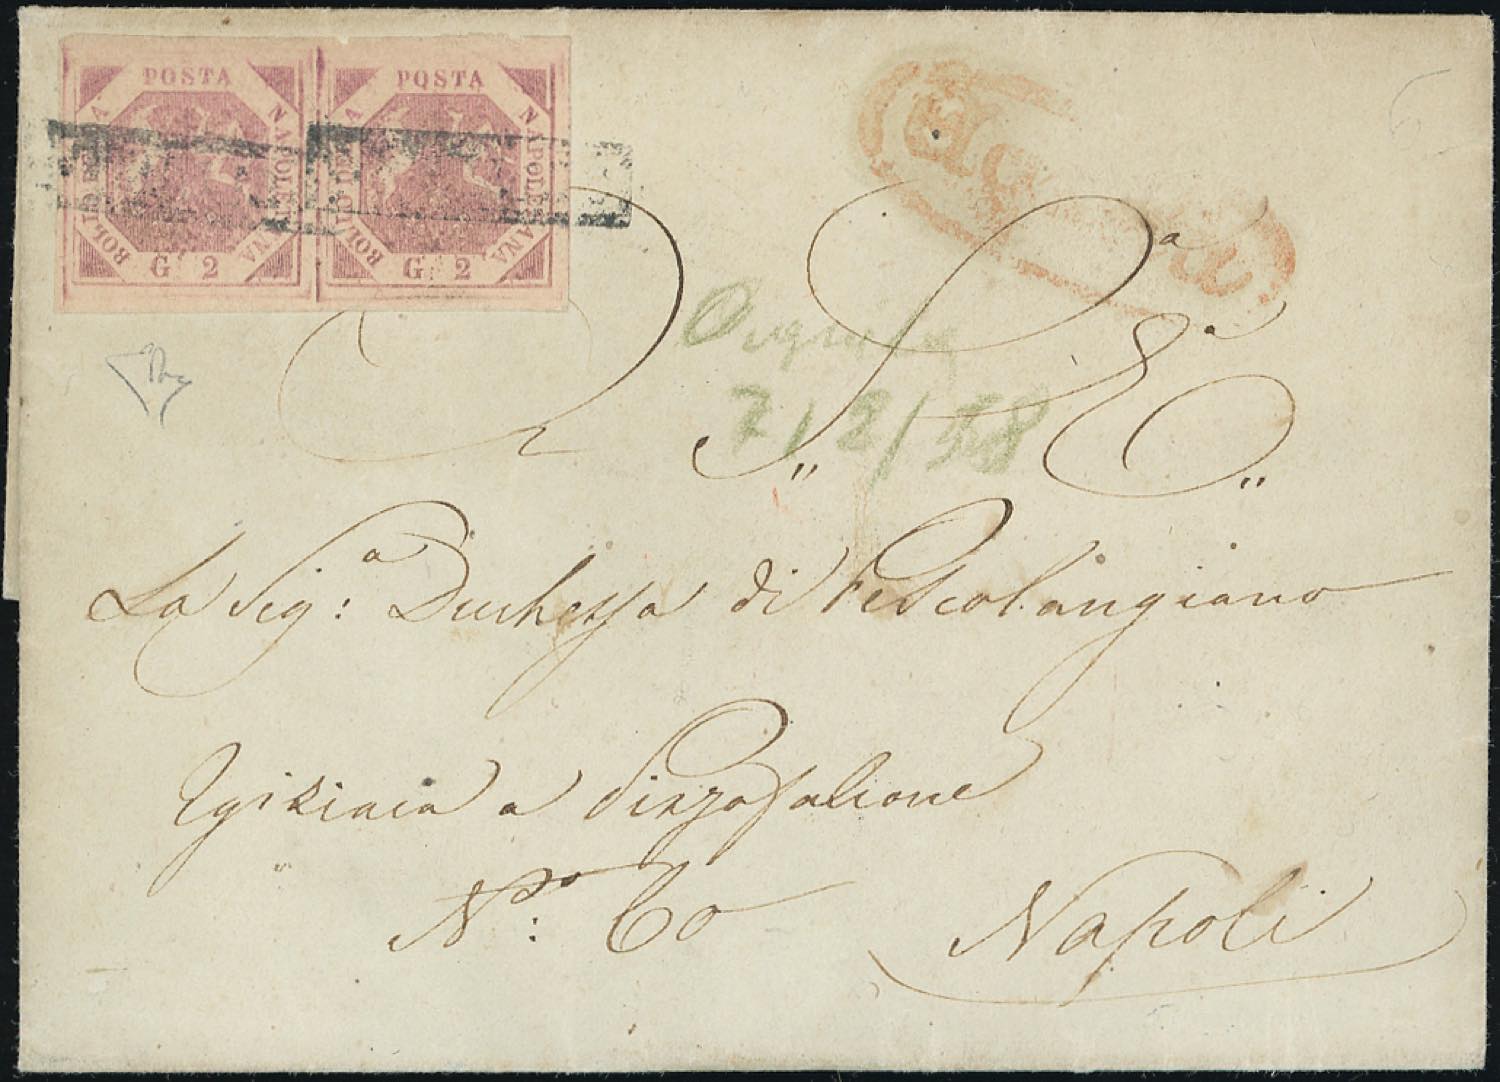 POSTA NAPOLETANA BOLLO DELLA G. 2
POSTA NAPOLETANA BOLLO DELLA G. 2
7/2/58
A S.ª E.ª
La Sig.ª Duchessa di Pescolangiano
a Pizzofalcone
N.º 60 Napoli